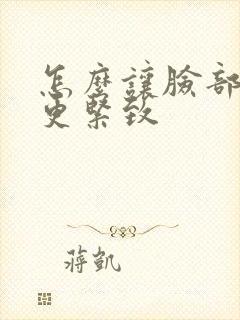 怎麼讓臉部
更緊致
蔣凱